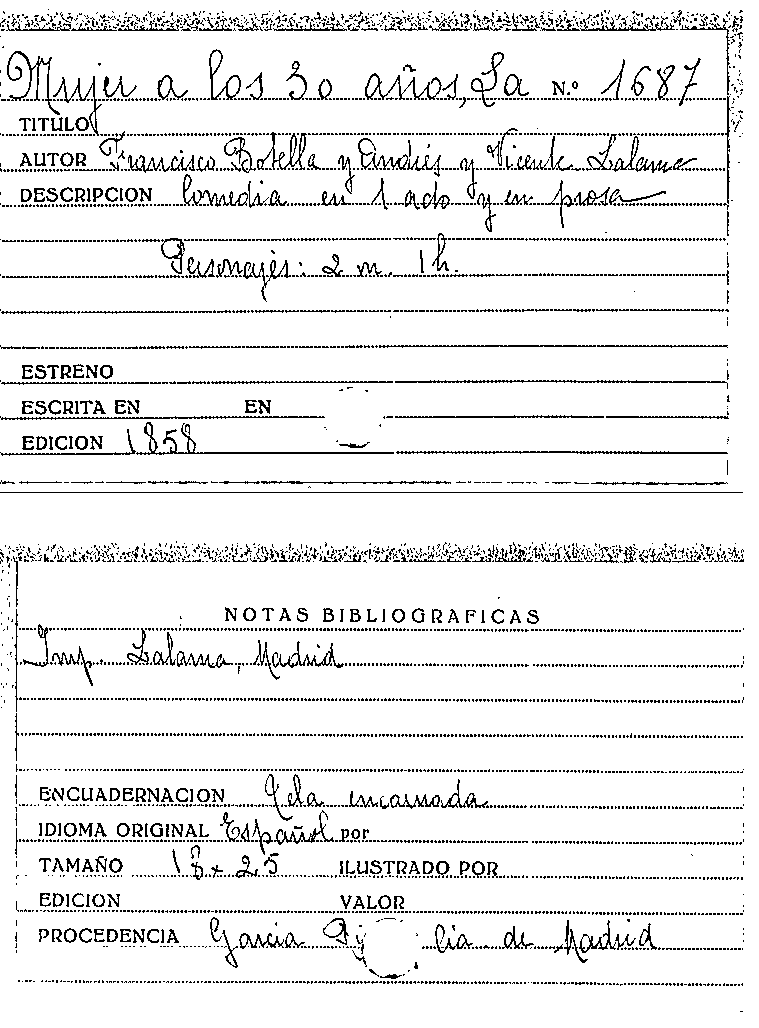 Mujer a los 30 años, La N.º 1687
TITULO
AUTOR Francisco Botella y Andrés y Vicente Lalama
DESCRIPCION Comedia en 1 acto y en prosa
Personajes: 2 m. 1 h.
ESTRENO
ESCRITA EN EN
EDICION 1858
NOTAS BIBLIOGRAFICAS
Imp. Lalama, Madrid
ENCUADERNACION Tela encarnada
IDIOMA ORIGINAL Español por
TAMAÑO 18 x 25 ILUSTRADO POR
EDICION VALOR
PROCEDENCIA Garcia de Madrid